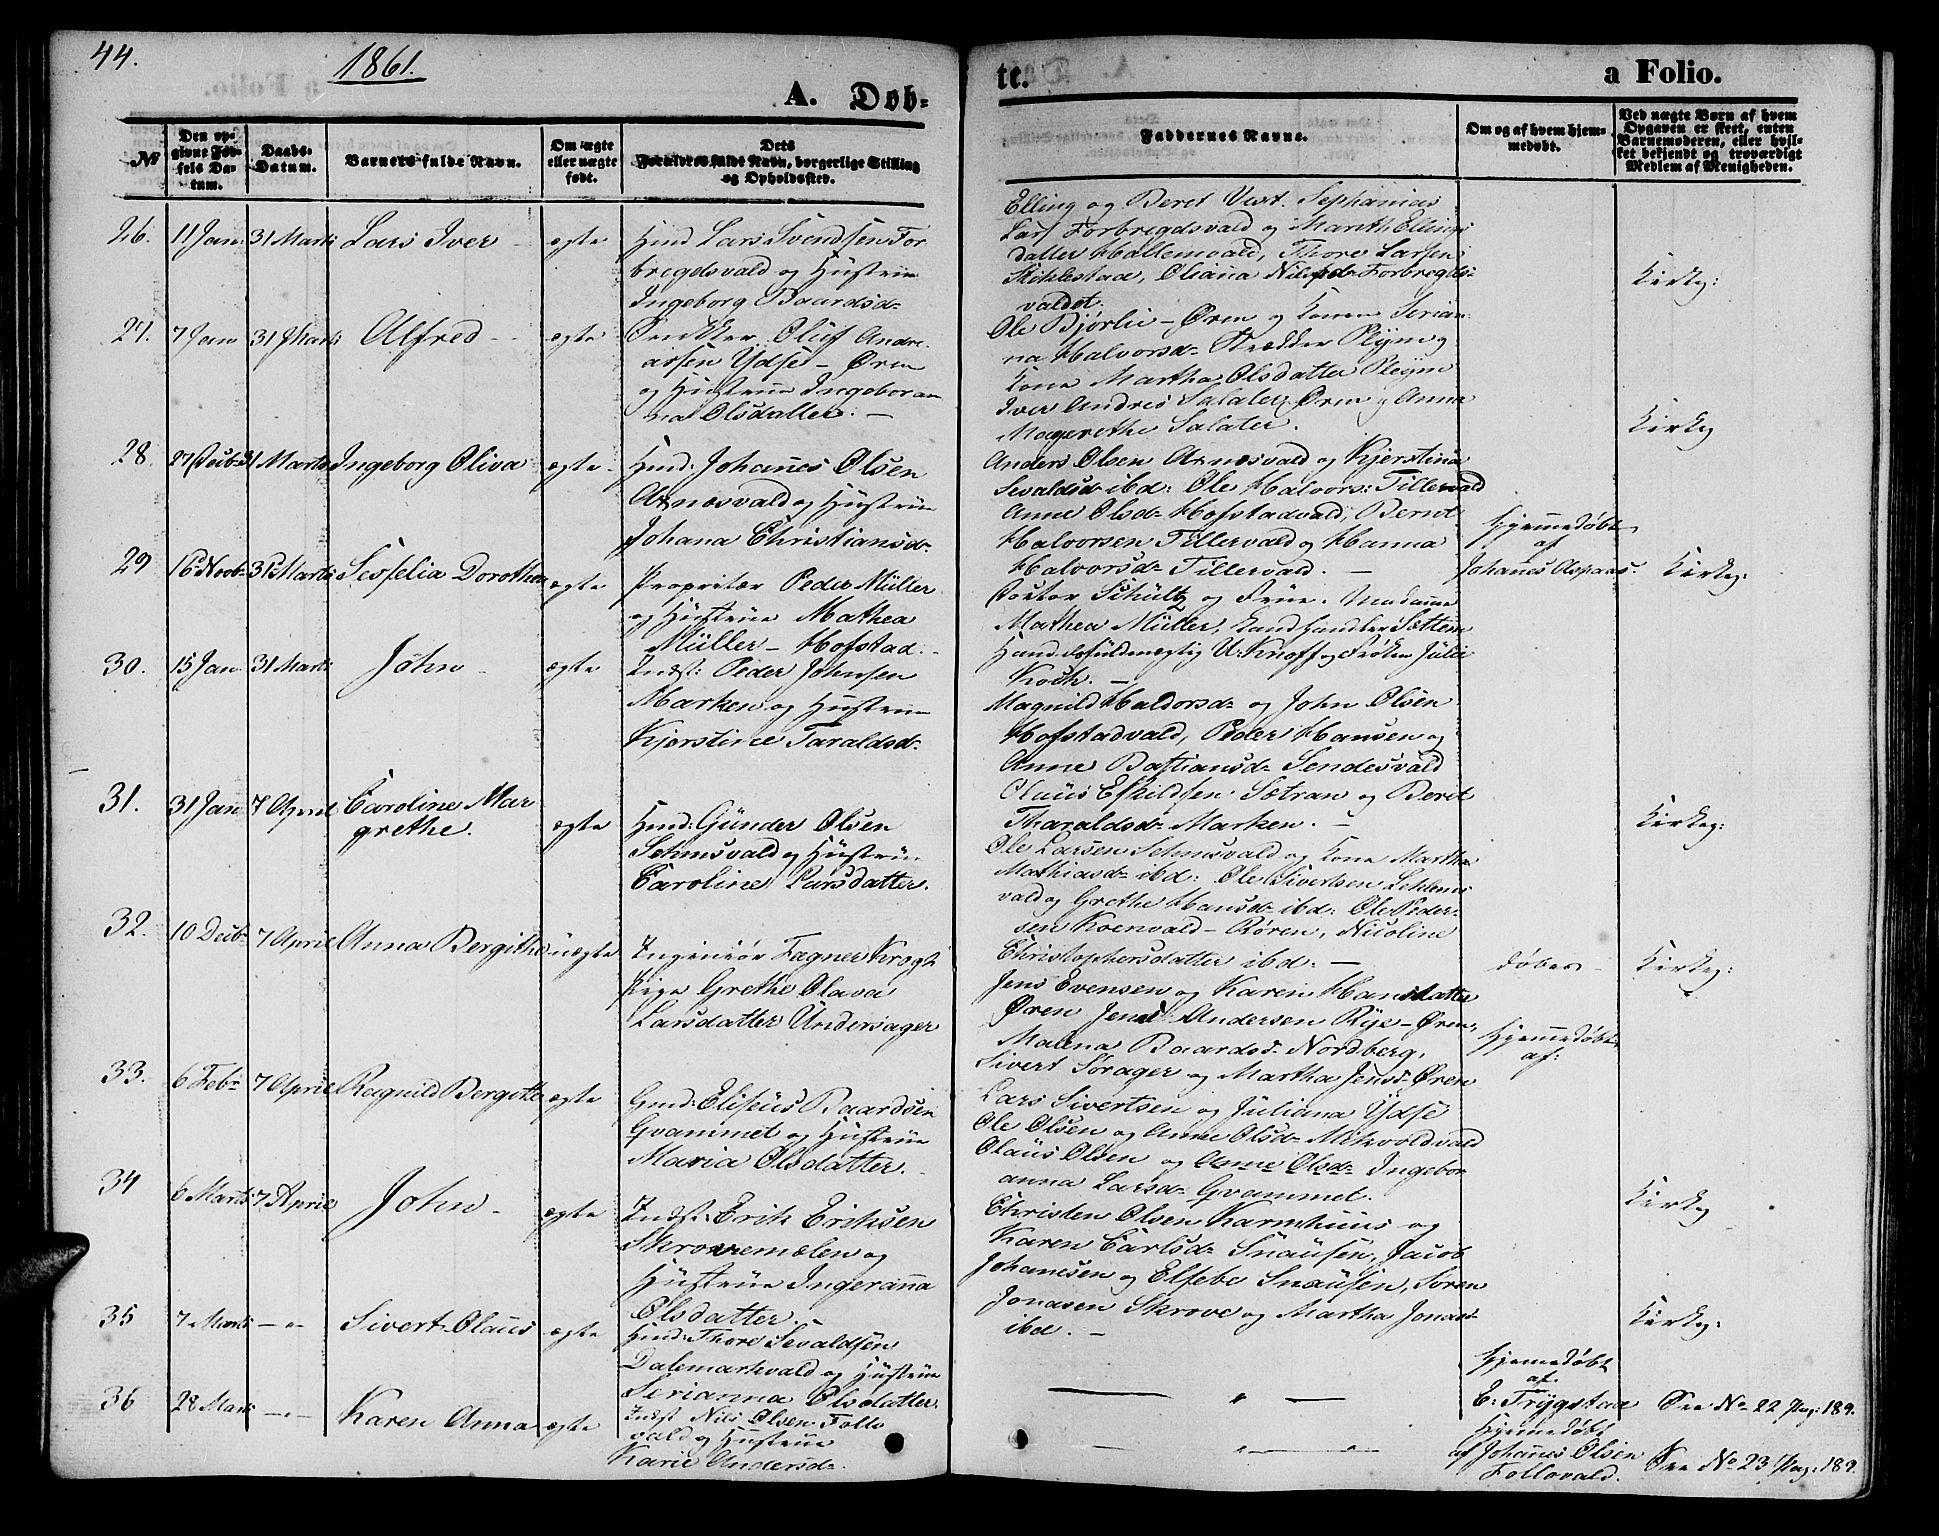 44.
1861.
A. Døb-
te.
a Folio.
№
Den op-
givne Fød-
sels Da-
tum.
Daabs-
Datum.
Barnets fulde Navn.
Om ægte
eller uægte
født.
Dets
Forældres fulde Navn, borgerlige Stilling
og Opholdssted.
Faddernes Navne.
Om og af hvem hjem-
medøbt.
Ved uægte Børn af hvem
Opgaven er skeet, enten
Barnemoderen, eller hvil-
ket bekjendt og troværdigt
Medlem af Menigheden.
26. 11 Jan: 31 Marti Lars Iver ægte
Hmd Lars Svendsen For
bregdsvald og Hustrue
Ingeborg Baardsd-
Elling og Beret Vest. Sephanias
Lars Forbregdsvald og Marith Ellings
datter Hallemvald, Thore Larsen
Stiklestad, Oliana Nilsd- Forbregds-
valdet.
Kirkeg:
27. 7 Jan 31 Marti Alfred ægte
Snekker Oluf Andre
assen Ydse - Øren
og Hustrue Ingeboran
na Olsdatter. -
Ole Bjørlie - Øren og Konen Serian
na Halvorsd- Skrædder Pleym og
Kone Martha Olsdatter Pleym
Iver Andreas Salater Øren og Anna
Magrethe Salater.
Kirkeg
28. 27 Decb- 31 Marts Ingeborg Oliva ægte
Hmd: Johanes Olsen
Arnæsvald og Hustrue
Johana Christiansd-
Anders Olsen Arnæsvald og Kjerstina
Sevaldsd- ibd: Ole Halvors: Tillervald
Anne Olsd- Hofstadvald, Bernt
Halvorsen Tillervald og Hanna
Halvorsd- Tillervald. -
Hjemmedøbt
af
Johanes Aspaas.
Kirkeg:
29 16 Novb- 31 Marti Sesselia Dorothea ægte
Propritær Peder Müller
og Hustrue Mathea
Müller - Hofstad. -
Doktor Schültz og Frue. Madame
Mathea Müller, Landhandler Sættem
Handelsfuldmægtig U: Knoff og Frøken Julie
Koch. -
30. 15 Jan 31 Marti John ægte
Indst: Peder Johnsen
Marken og Hustrue
Kjerstine Taraldsd-
Magnild Haldorsd- og John Olsen
Hofstadvald, Peder Hansen og
Anne Bastiansd- Sendesvald
Olaus Eskildsen Sætran og Beret
Tharaldsd- Marken. -
31. 31 Jan 7 April Caroline Mar
grethe. ægte
Hmd: Günder Olsen
Selmsvald og Hustrue
Caroline Larsdatter.
Ole Larsen Selmsvald og Kone Martha
Mathiasd- ibd: Ole Sivertsen Selmes
vald og Grethe Hansd- ibd: Ole Peder-
sen Koenvald - Røren, Nicoline
Christophersdatter ibd: -
Kirkeg:
32. 10 Decb- 7 April Anna Bergithe uægte
Ingeniør Fægner Krogh
Pige Grethe Olava
Larsdatter Undersager
Jens Evensen og Karen Hansdatter
Øren Jens Andersen Rye - Øren,
Malena Baardsd- Nordberg,
Sivert Sørager og Martha Jensd- Øren
døbes
Kirkeg:
33. 6 Feb- 7 April Ragnild Bergitte ægte
Gmd: Eliseus Baardsen
Gvammet og Hustrue
Maria Olsdatter.
Lars Sivertsen og Juliana Ydse
Ole Olsen og Anne Olsd- Mikvoldvald
Olaus Olsen og Anne Olsd- Ingebor
anna Larsd- Gvammet.
Hjemmedøbt
af:
34 6 Marts 7 April John - ægte
Indst: Erik Eriksen
Skrovemælen og
Hustrue Ingeranna
Olsdatter.
Christen Olsen Karmhuus og
Karen Carlsd- Snausen, Jacob
Johansen og Elsebe Snausen, Soren
Jonasen Skrove og Martha Jonasd-
ibd. -
Kirkeg
35 7 Marts -"- Sivert Olaus ægte
Hmd: Thore Sevaldsen
Dalemarkvald og Hustrue
Serianna Olsdatter.
Kirkeg:
Hjemedøbt
af.
E: Trygstad
See No 22 Pag: 189.
36 28 Marts -"- Karen Anna ægte
Indst Nils Olsen Follo
vald og Hustrue
Karie Andersd-
Hjemmedøbt
af Johanes Olsen
Follovald.
See No 23 Pag: 189.